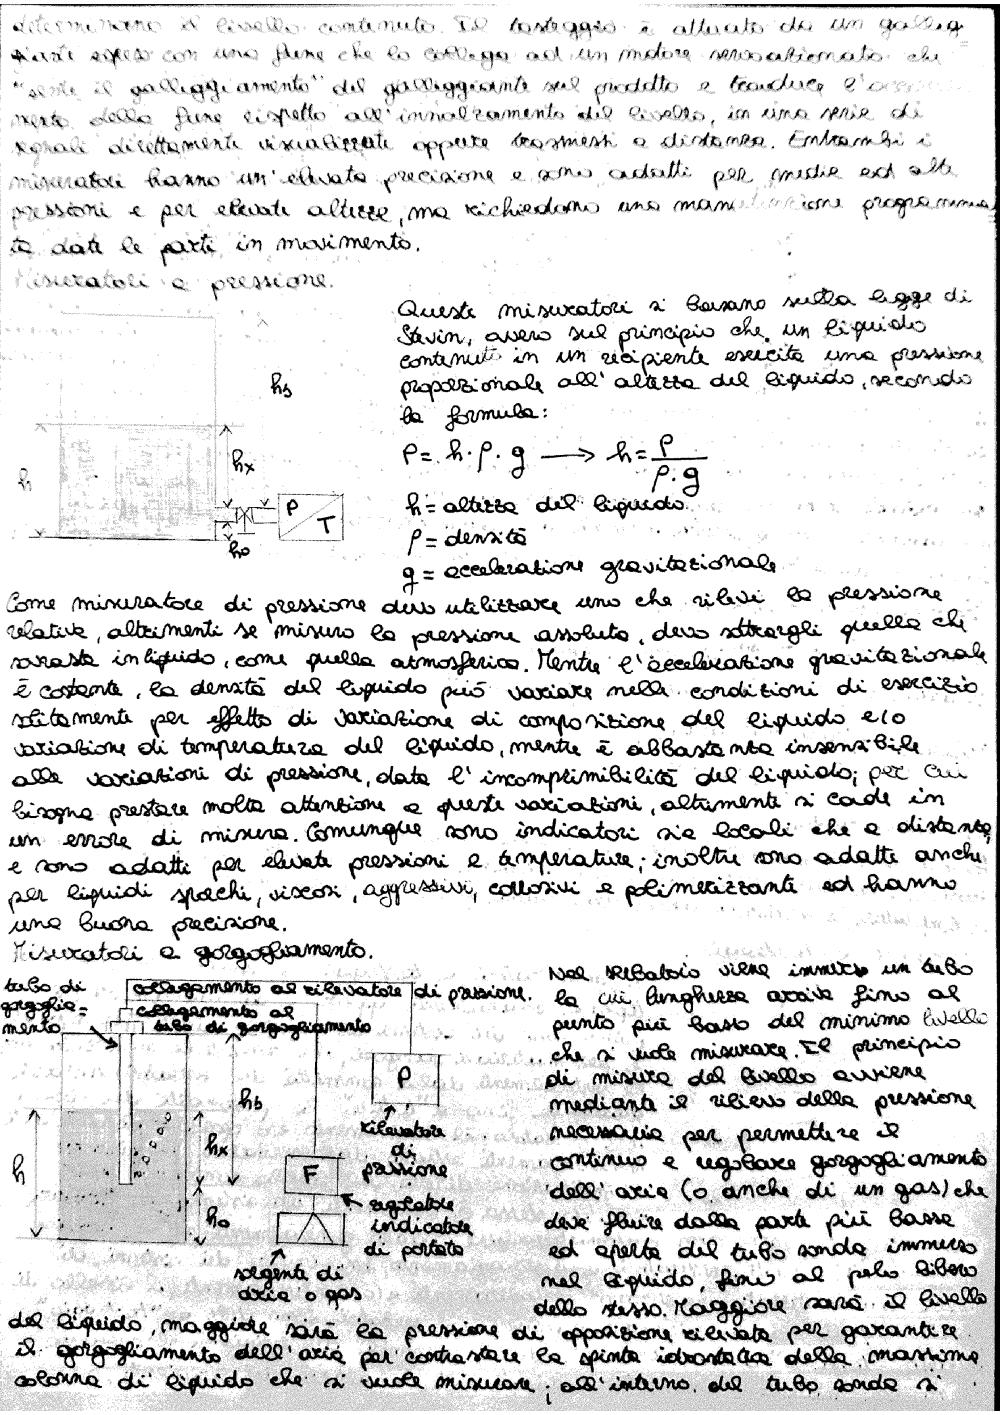 determinano il livello contenuto. Il tasteggio è attuato da un galleg=
giante appeso con una fune che lo collega ad un motore servoazionato che
"sente il galleggiamento" del galleggiante sul prodotto e traduce l'
mento della fune rispetto all'innalzamento del livello, in una serie di
segnali direttamente visualizzati oppure trasmessi a distanza. Entrambi i
misuratori hanno un'elevata precisione e sono adatti per medie ed alte
pressioni e per elevate altezze, ma richiedono una manutenzione programma
ta date le parti in movimento.
Misuratori a pressione.
Questi misuratori si basano sulla legge di
Stevin, ovvero sul principio che un liquido
contenuto in un recipiente esercita una pressione
proporzionale all'altezza del liquido, secondo
la formula:
P = h · ρ · g → h = P / ρ · g
h = altezza del liquido
ρ = densità
g = accelerazione gravitazionale
hs
h
hx
ho
P
T
Come misuratore di pressione devo utilizzare uno che rilevi la pressione
relativa, altrimenti se misuro la pressione assoluta, devo sottrargli quella che
sovrasta in liquido, come quella atmosferica. Mentre l'accelerazione gravitazionale
è costante, la densità del liquido può variare nelle condizioni di esercizio
solitamente per effetto di variazione di composizione del liquido e/o
variazione di temperatura del liquido, mentre è abbastanza insensibile
alle variazioni di pressione, data l'incomprimibilità del liquido; per cui
bisogna prestare molta attenzione a queste variazioni, altrimenti si cade in
un errore di misura. Comunque sono indicatori sia locali che a distanza,
e sono adatti per elevate pressioni e temperature; inoltre sono adatte anche
per liquidi sporchi, viscosi, aggressivi, corrosivi e polimerizzanti ed hanno
una buona precisione.
Misuratori a gorgogliamento.
tubo di
gorgoglia=
mento
collagamento al rilevatore di pressione.
collagamento al
tubo di gorgogliamento
h
hb
hx
ho
P
rilevatore
di
pressione
F
regolatore
indicatore
di portata
sorgente di
aria o gas
Nel serbatoio viene immerso un tubo
la cui lunghezza arriva fino al
punto più basso del minimo livello
che si vuole misurare. Il principio
di misura del livello avviene
mediante il rilievo della pressione
necessaria per permettere il
continuo e regolare gorgogliamento
dell'aria (o anche di un gas) che
deve fluire dalla parte più bassa
ed aperta del tubo sonda immerso
nel liquido, fino al pelo libero
dello stesso. Maggiore sarà il livello
del liquido, maggiore sarà la pressione di opposizione rilevata per garantire
il gorgogliamento dell'aria per contrastare la spinta idrostatica della massima
colonna di liquido che si vuole misurare; all'interno del tubo sonda si